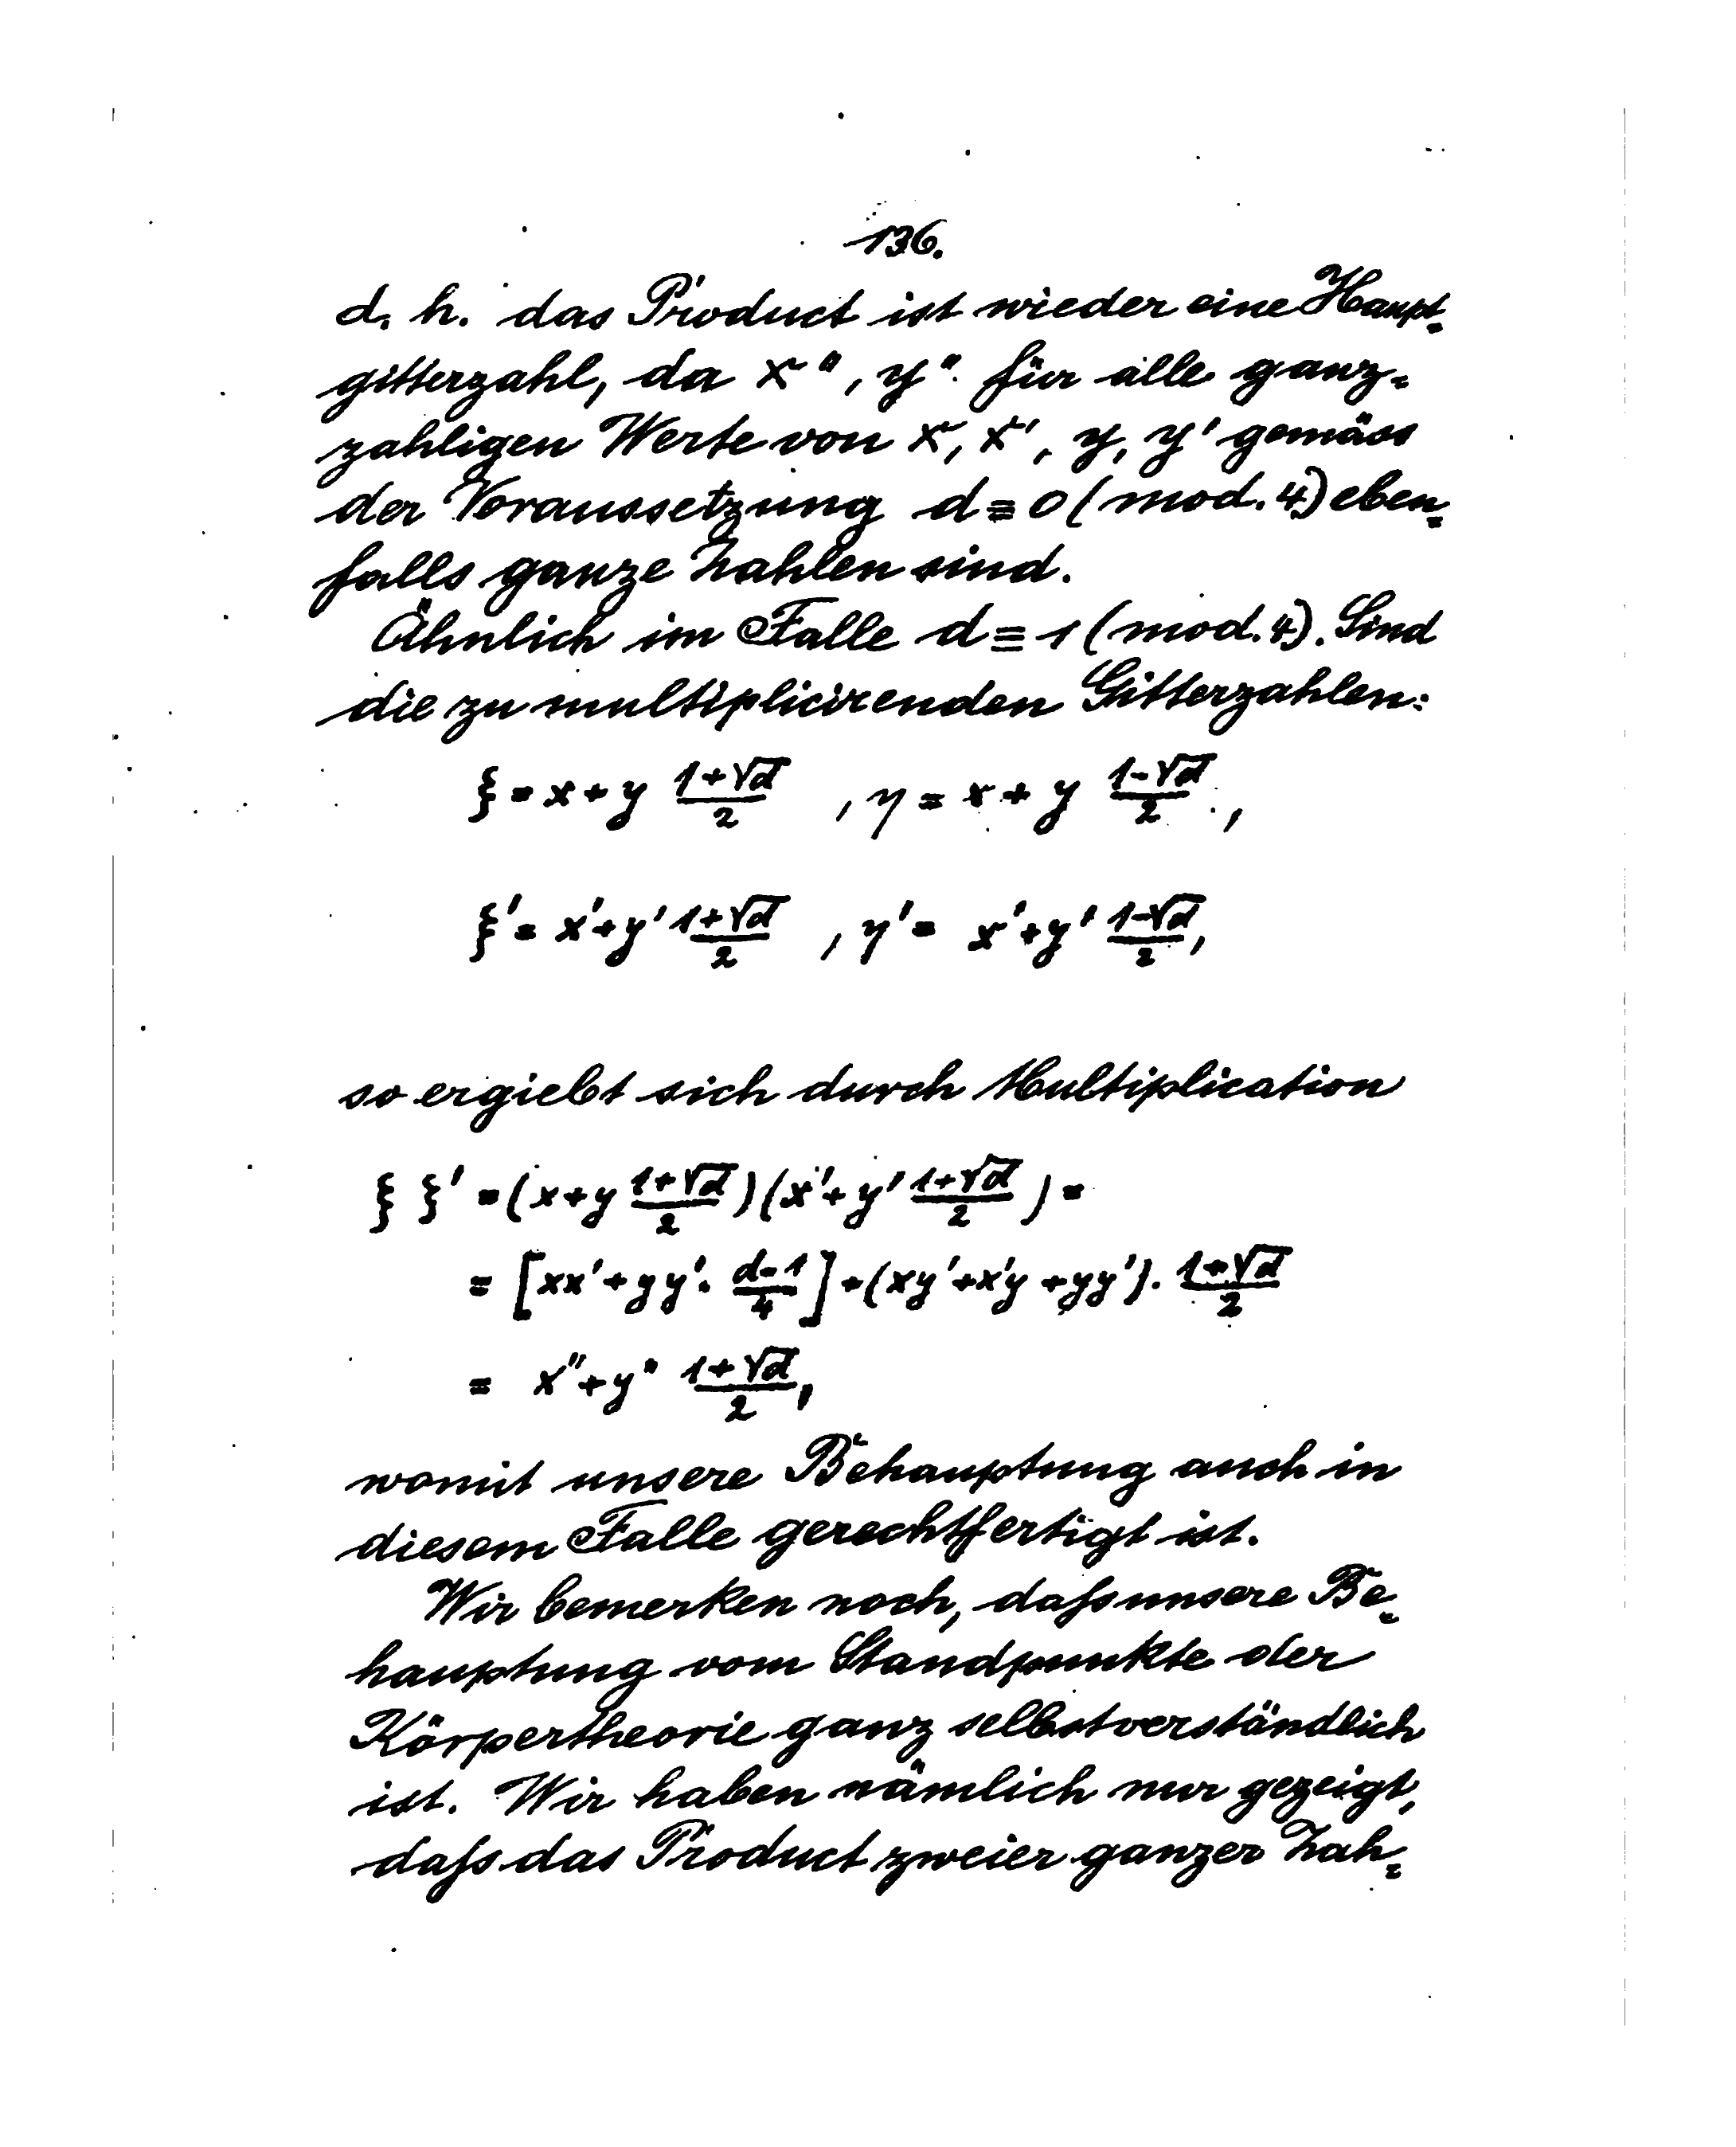 136.
d. h. das Product ist wieder eine Haupt=
gitterzahl, da x", y" für alle ganz=
zahligen Werte von x, x', y, y' gemäss
der Voraussetzung d ≡ 0 (mod. 4) eben=
falls ganze Zahlen sind.
Ähnlich im Falle d ≡ 1 (mod. 4). Sind
die zu multiplicirenden Gitterzahlen:
ξ = x + y (1+√d)/2 , η = x + y (1-√d)/2 ,
ξ' = x' + y' (1+√d)/2 , η' = x' + y' (1-√d)/2 ,
so ergiebt sich durch Multiplication
ξ ξ' = (x + y (1+√d)/2)(x' + y' (1+√d)/2) =
= [xx' + yy' · (d-1)/4] + (xy' + x'y + yy') · (1+√d)/2
= x" + y" (1+√d)/2 ,
womit unsere Behauptung auch in
diesem Falle gerechtfertigt ist.
Wir bemerken noch, daß unsere Be=
hauptung vom Standpunkte der
Körpertheorie ganz selbstverständlich
ist. Wir haben nämlich nur gezeigt,
daß das Product zweier ganzer Zah=